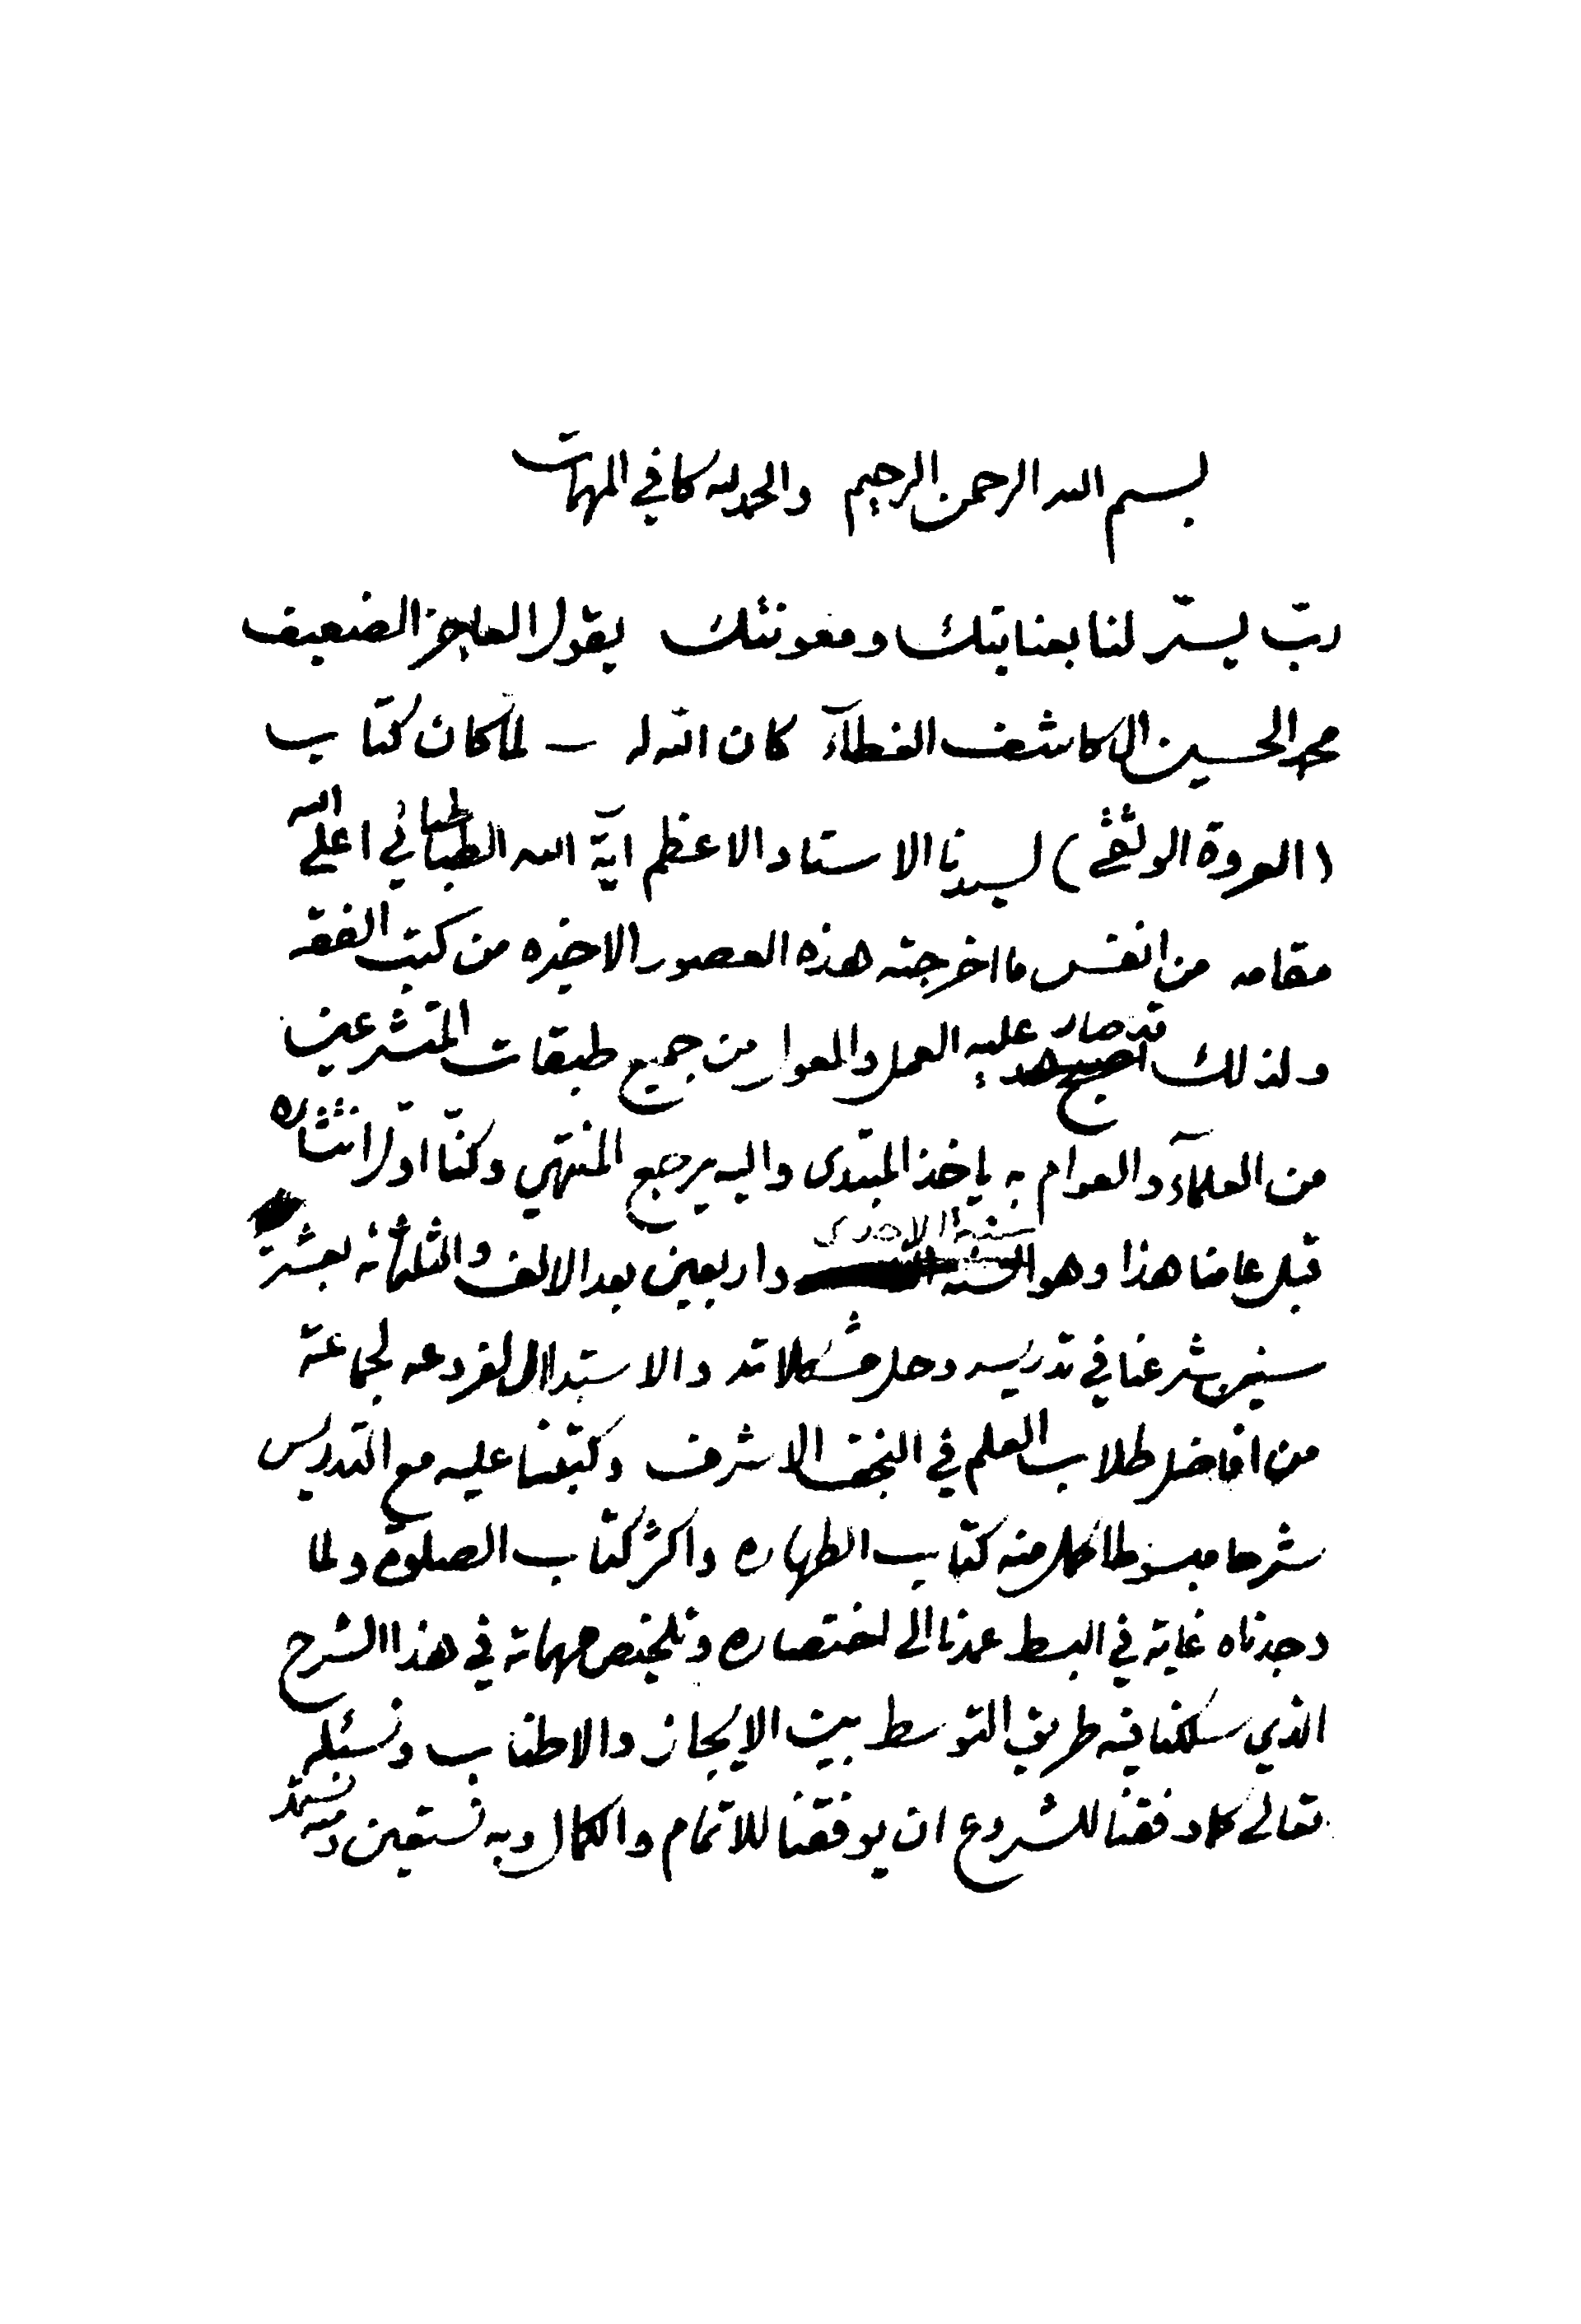 بسم الله الرحمن الرحيم والحمد لله كافي المهمات
ربّ يسّر لنا بعنايتك ومعونتك يقول العاجز الضعيف
محمد الحسين ال كاشف الغطآء كان الله له ـ لما كان كتاب
(العروة الوثقى) لسيدنا الاستاد الاعظم اية الله الطباطبائي اعلى الله
مقامه من انفس ما اخرجته هذه العصور الاخيره من كتب الفقه
ولذلك قد صار عليه العمل والمعول من جميع طبقات المتشرعين
من العلمآء والعوام به ياخذ المبتدى واليه يرجع المنتهي وكنّا اوّل انتشاره
قبل عامنا هذا وهو سنة الاحدى واربعين بعد الالف والثلثمائه بعشر
سنين شرعنا في تدريسه وحل مشكلاته والاستدلال لفروعه لجماعة
من افاضل طلاب العلم في النجف الاشرف وكتبنا عليه مع التدريس
شرحا مبسوطا كمل منه كتاب الطهاره واكثر كتاب الصلوة ولما
وجدناه غاية في البسط عمدنا الى اختصاره وتلخيص مهماته في هذا الشرح
الذي سلكنا فيه طريق التوسط بين الايجاز والاطناب ونسئله
تعالى كما وفقنا للشروع ان يوفقنا للاتمام والكمال وبه نستعين ومنه نستمد